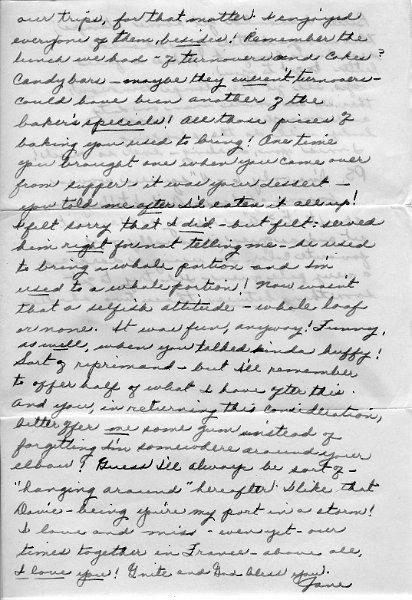 our trips, for that matter. I enjoyed
everyone of them, besides! Remember the
lunch we had - of turnovers and cakes?
Candy bars - maybe they weren't turnovers -
could have been another of the
baker's specials! All those pieces of
baking you used to bring! One time
you brought one when you came over
from supper - it was your dessert -
you told me after I'd eaten it all up!
I felt sorry that I did - but felt: served
him right for not telling me - he used
to bring a whole portion and I'm
used to a whole portion! Now wasn't
that a selfish attitude - whole loaf
or none. It was fun, anyway! Funny,
as well, when you talked kinda huffy!
Sort of reprimand - but I'll remember
to offer half of what I have after this.
And you, in returning this consideration,
better offer me some gum instead of
forgetting I'm somewhere around your
elbow! Guess I'll always be sort of -
"hanging around" hereafter. I like that
Davie - being you're my port in a storm!
I love and miss - even yet - our
times together in France - above all,
I love you! G'nite and God bless you.
Jane